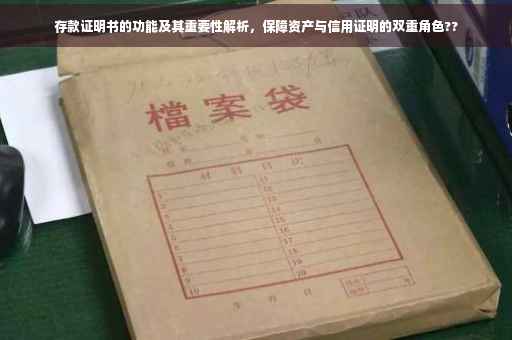 存款证明书的功能及其重要性解析，保障资产与信用证明的双重角色??
檔案袋
材料目次
1 11
2 12
3 13
4 14
5 15
6 16
7 17
8 18
9 19
10 20
年 月 日